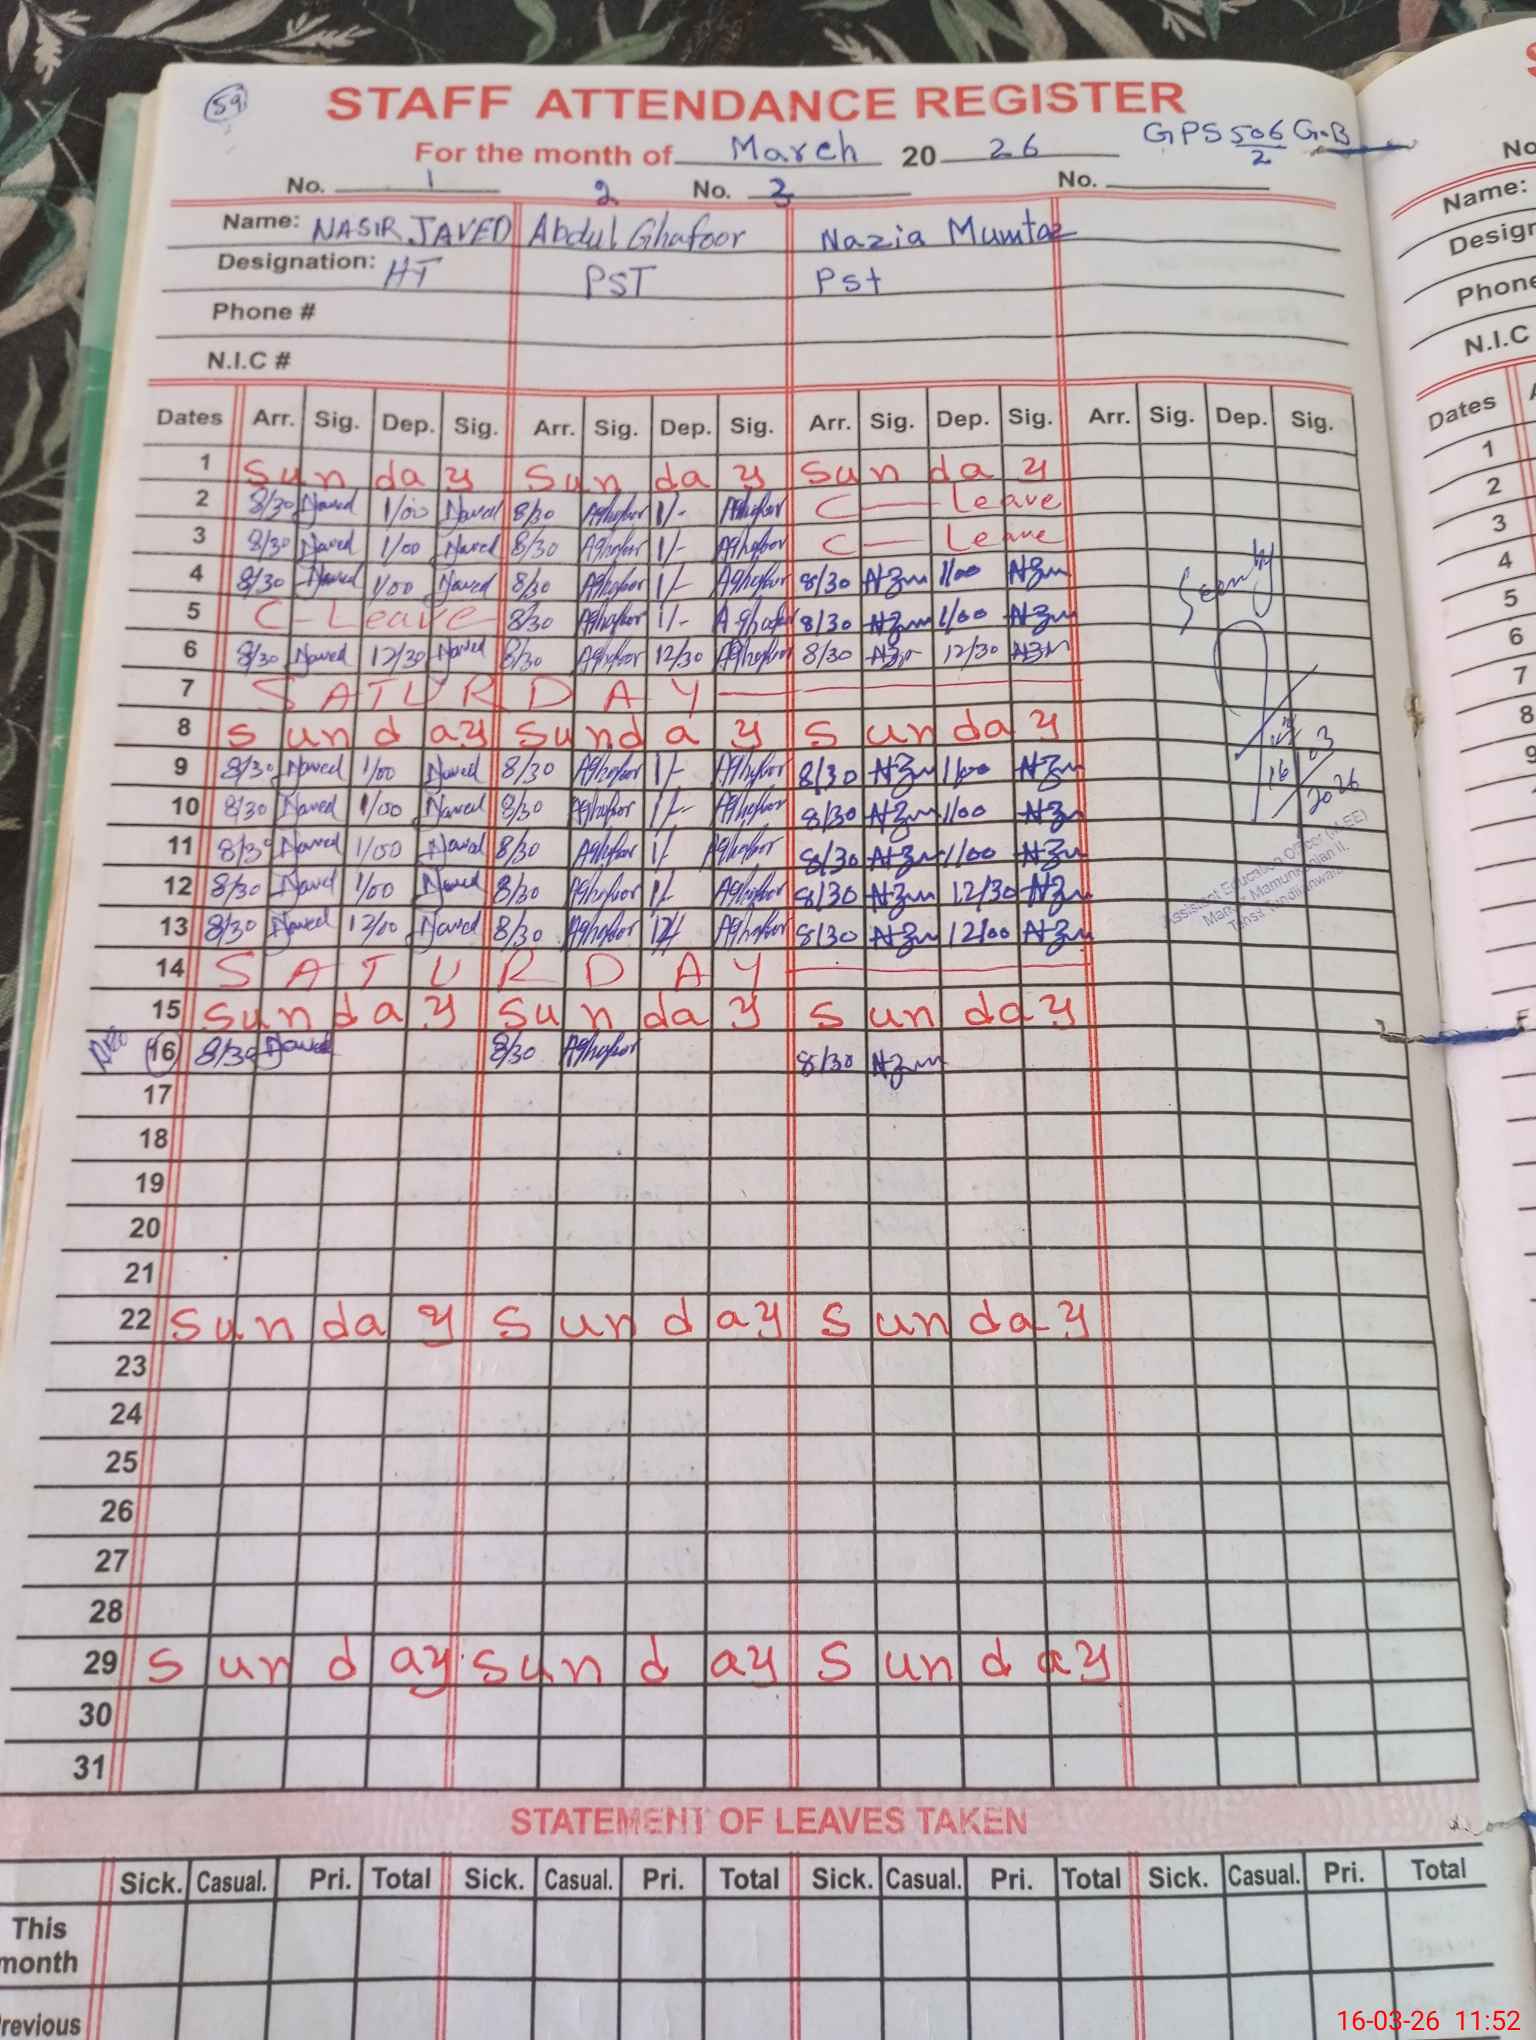 59
STAFF ATTENDANCE REGISTER
GPS 506/2 G.B
For the month of March 2026
No. 1 2 No. 3 No.
Name: NASIR JAVED Abdul Ghafoor Nazia Mumtaz
Designation: HT PST Pst
Phone #
N.I.C #
Dates Arr. Sig. Dep. Sig. Arr. Sig. Dep. Sig. Arr. Sig. Dep. Sig. Arr. Sig. Dep. Sig.
1 Sunday Sunday Sunday
2 8/30 Javed 1/00 Javed 8/30 AGhafoor 1/- AGhafoor C — Leave
3 8/30 Javed 1/00 Javed 8/30 AGhafoor 1/- AGhafoor C — Leave
4 8/30 Javed 1/00 Javed 8/30 AGhafoor 1/- AGhafoor 8/30 1/00
5 C - Leave 8/30 AGhafoor 1/- AGhafoor 8/30 1/00
6 8/30 Javed 12/30 Javed 8/30 AGhafoor 12/30 AGhafoor 8/30 12/30
7 SATURDAY
8 Sunday Sunday Sunday
9 8/30 Javed 1/00 Javed 8/30 AGhafoor 1/- AGhafoor 8/30 1/00
10 8/30 Javed 1/00 Javed 8/30 AGhafoor 1/- AGhafoor 8/30 1/00
11 8/30 Javed 1/00 Javed 8/30 AGhafoor 1/- AGhafoor 8/30 1/00
12 8/30 Javed 1/00 Javed 8/30 AGhafoor 1/- AGhafoor 8/30 12/30
13 8/30 Javed 12/00 Javed 8/30 AGhafoor 12/- AGhafoor 8/30 12/00
14 SATURDAY
15 Sunday Sunday Sunday
16 8/30 Javed 8/30 AGhafoor 8/30
17
18
19
20
21
22 Sunday Sunday Sunday
23
24
25
26
27
28
29 Sunday Sunday Sunday
30
31
16/03/2026
Assistant Education Officer (M-EE)
Markaz Mamunkanjan II,
Tehsil Tandlianwala
STATEMENT OF LEAVES TAKEN
Sick. Casual. Pri. Total Sick. Casual. Pri. Total Sick. Casual. Pri. Total Sick. Casual. Pri. Total
This
month
revious
No
Name:
Design
Phone
N.I.C
Dates
1
2
3
4
5
6
7
8
9
16-03-26 11:52